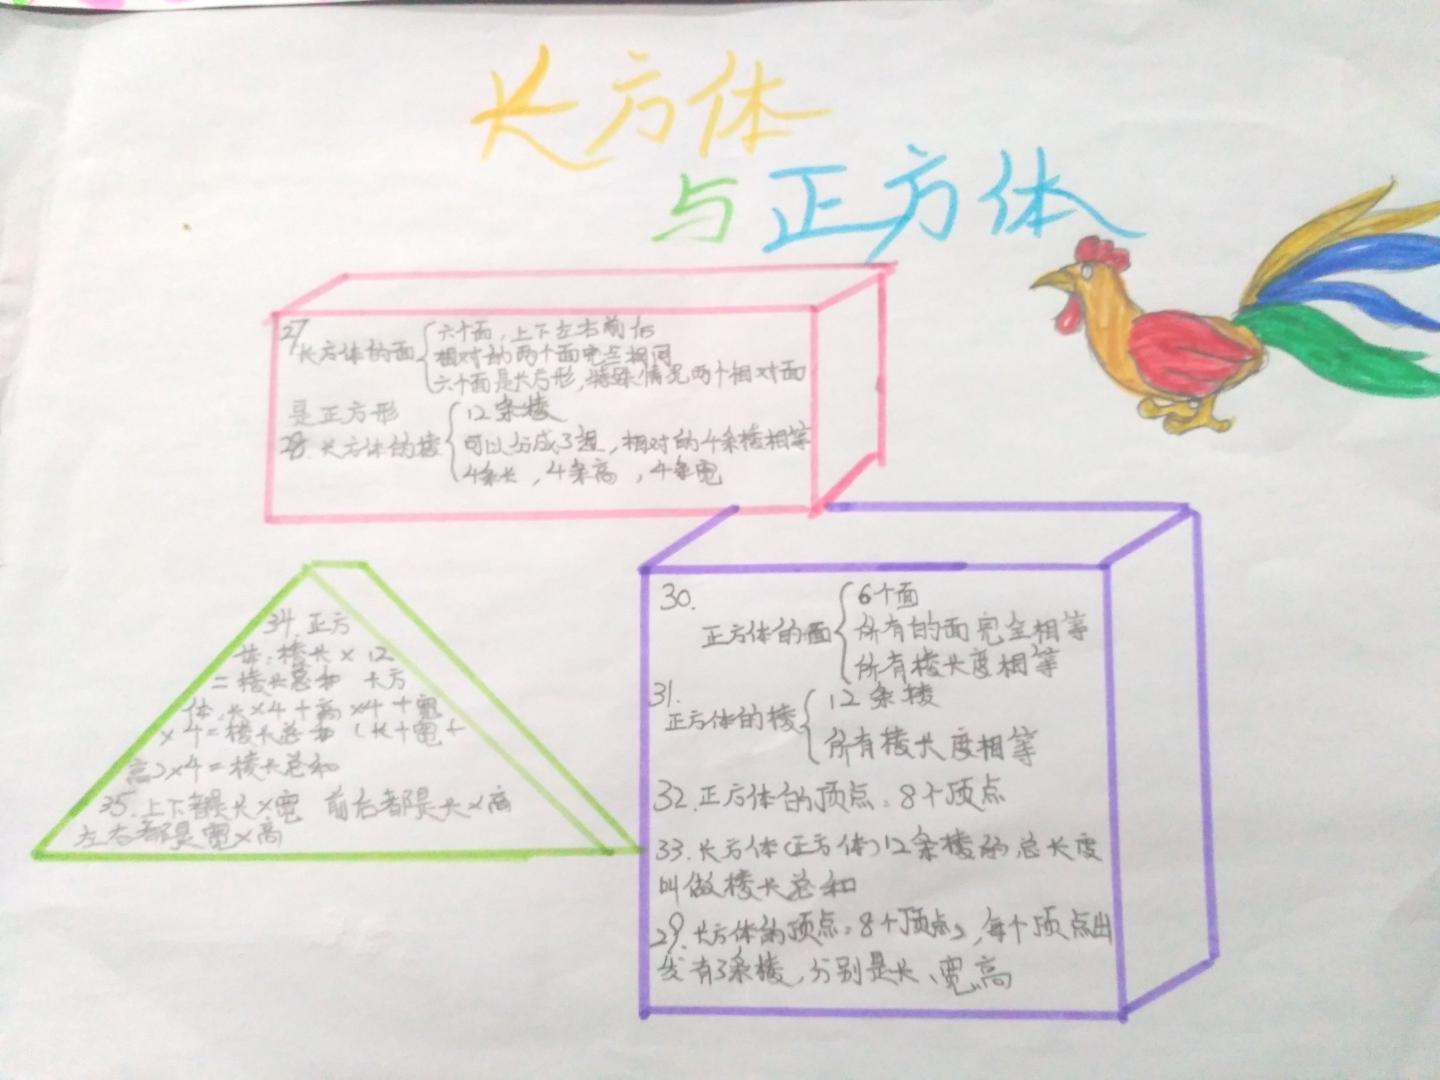 长方体
与正方体
27 长方体的面 六个面，上下左右前后
相对的两个面完全相同
六个面是长方形，特殊情况两个相对面
是正方形
28. 长方体的棱 12条棱
可以分成3组，相对的4条棱相等
4条长，4条高，4条宽
34. 正方
体：棱长×12
=棱长总和 长方
体：长×4+高×4+宽
×4=棱长总和（长+宽+
高）×4=棱长总和
35. 上下都是长×宽 前后都是长×高
左右都是宽×高
30.
正方体的面 6个面
所有的面完全相等
所有棱长度相等
31.
正方体的棱 12条棱
所有棱长度相等
32. 正方体的顶点：8个顶点
33. 长方体（正方体）12条棱的总长度
叫做棱长总和
29. 长方体的顶点：8个顶点，每个顶点出
发有3条棱，分别是长、宽、高